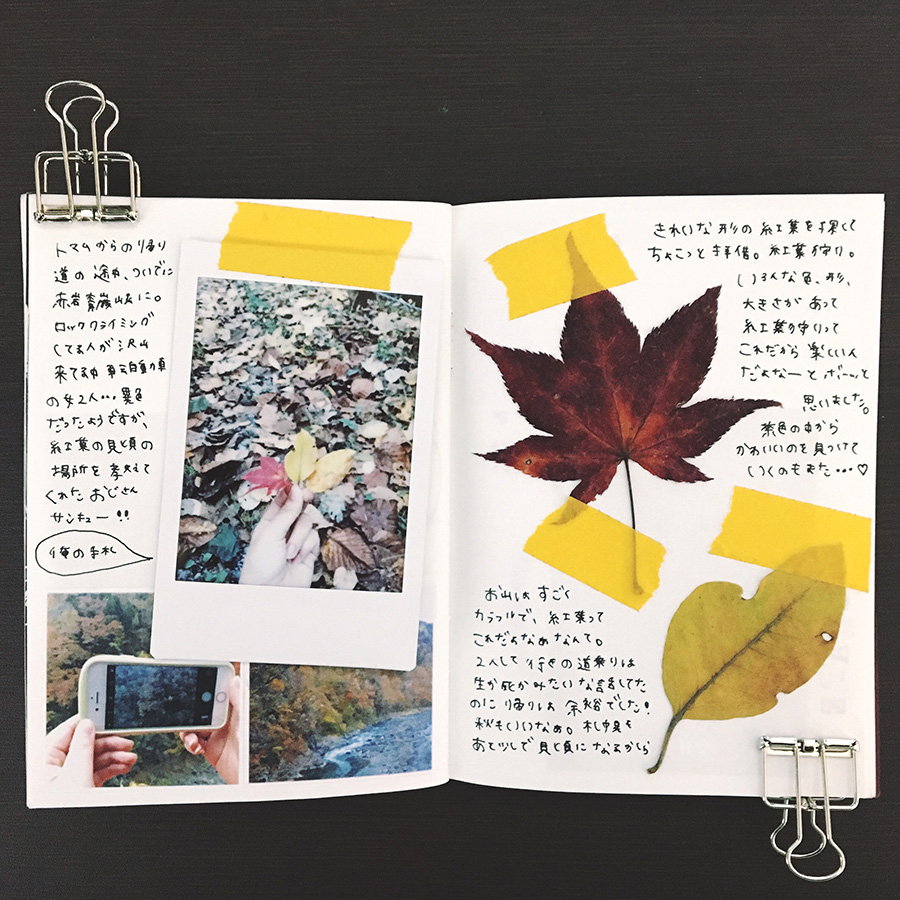 トマムからの帰り
道の途中、ついでに
赤岩青巌峡に。
ロッククライミング
してる人が沢山
来てる中
の女2人… 異色
だったようですが、
紅葉の見頃の
場所を教えて
くれたおじさん
サンキュー!!
俺の手札
きれいな形の紅葉を探して
ちょこっと拝借。紅葉狩り。
いろんな色、形、
大きさがあって
紅葉狩りって
これだから楽しいん
だよなーとボーッと
思いました。
茶色の中から
かわいいのを見つけて
いくのもまた…♡
お山はすごく
カラフルで、紅葉って
これだよなぁなんて。
2人して行きの道乗りは
生か死かみたいな話してた
のに帰りは余裕でした!
秋もいいなぁ。札幌も
あと少しで見頃になるかしら